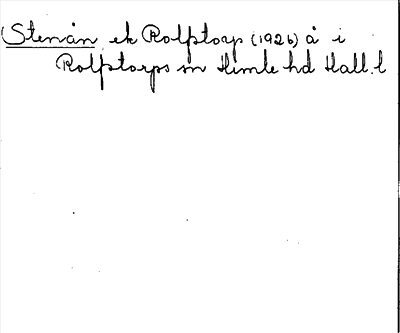 Stenån ek Rolfstorp (1926) å i
Rolfstorps sn Himle hd Hall. l